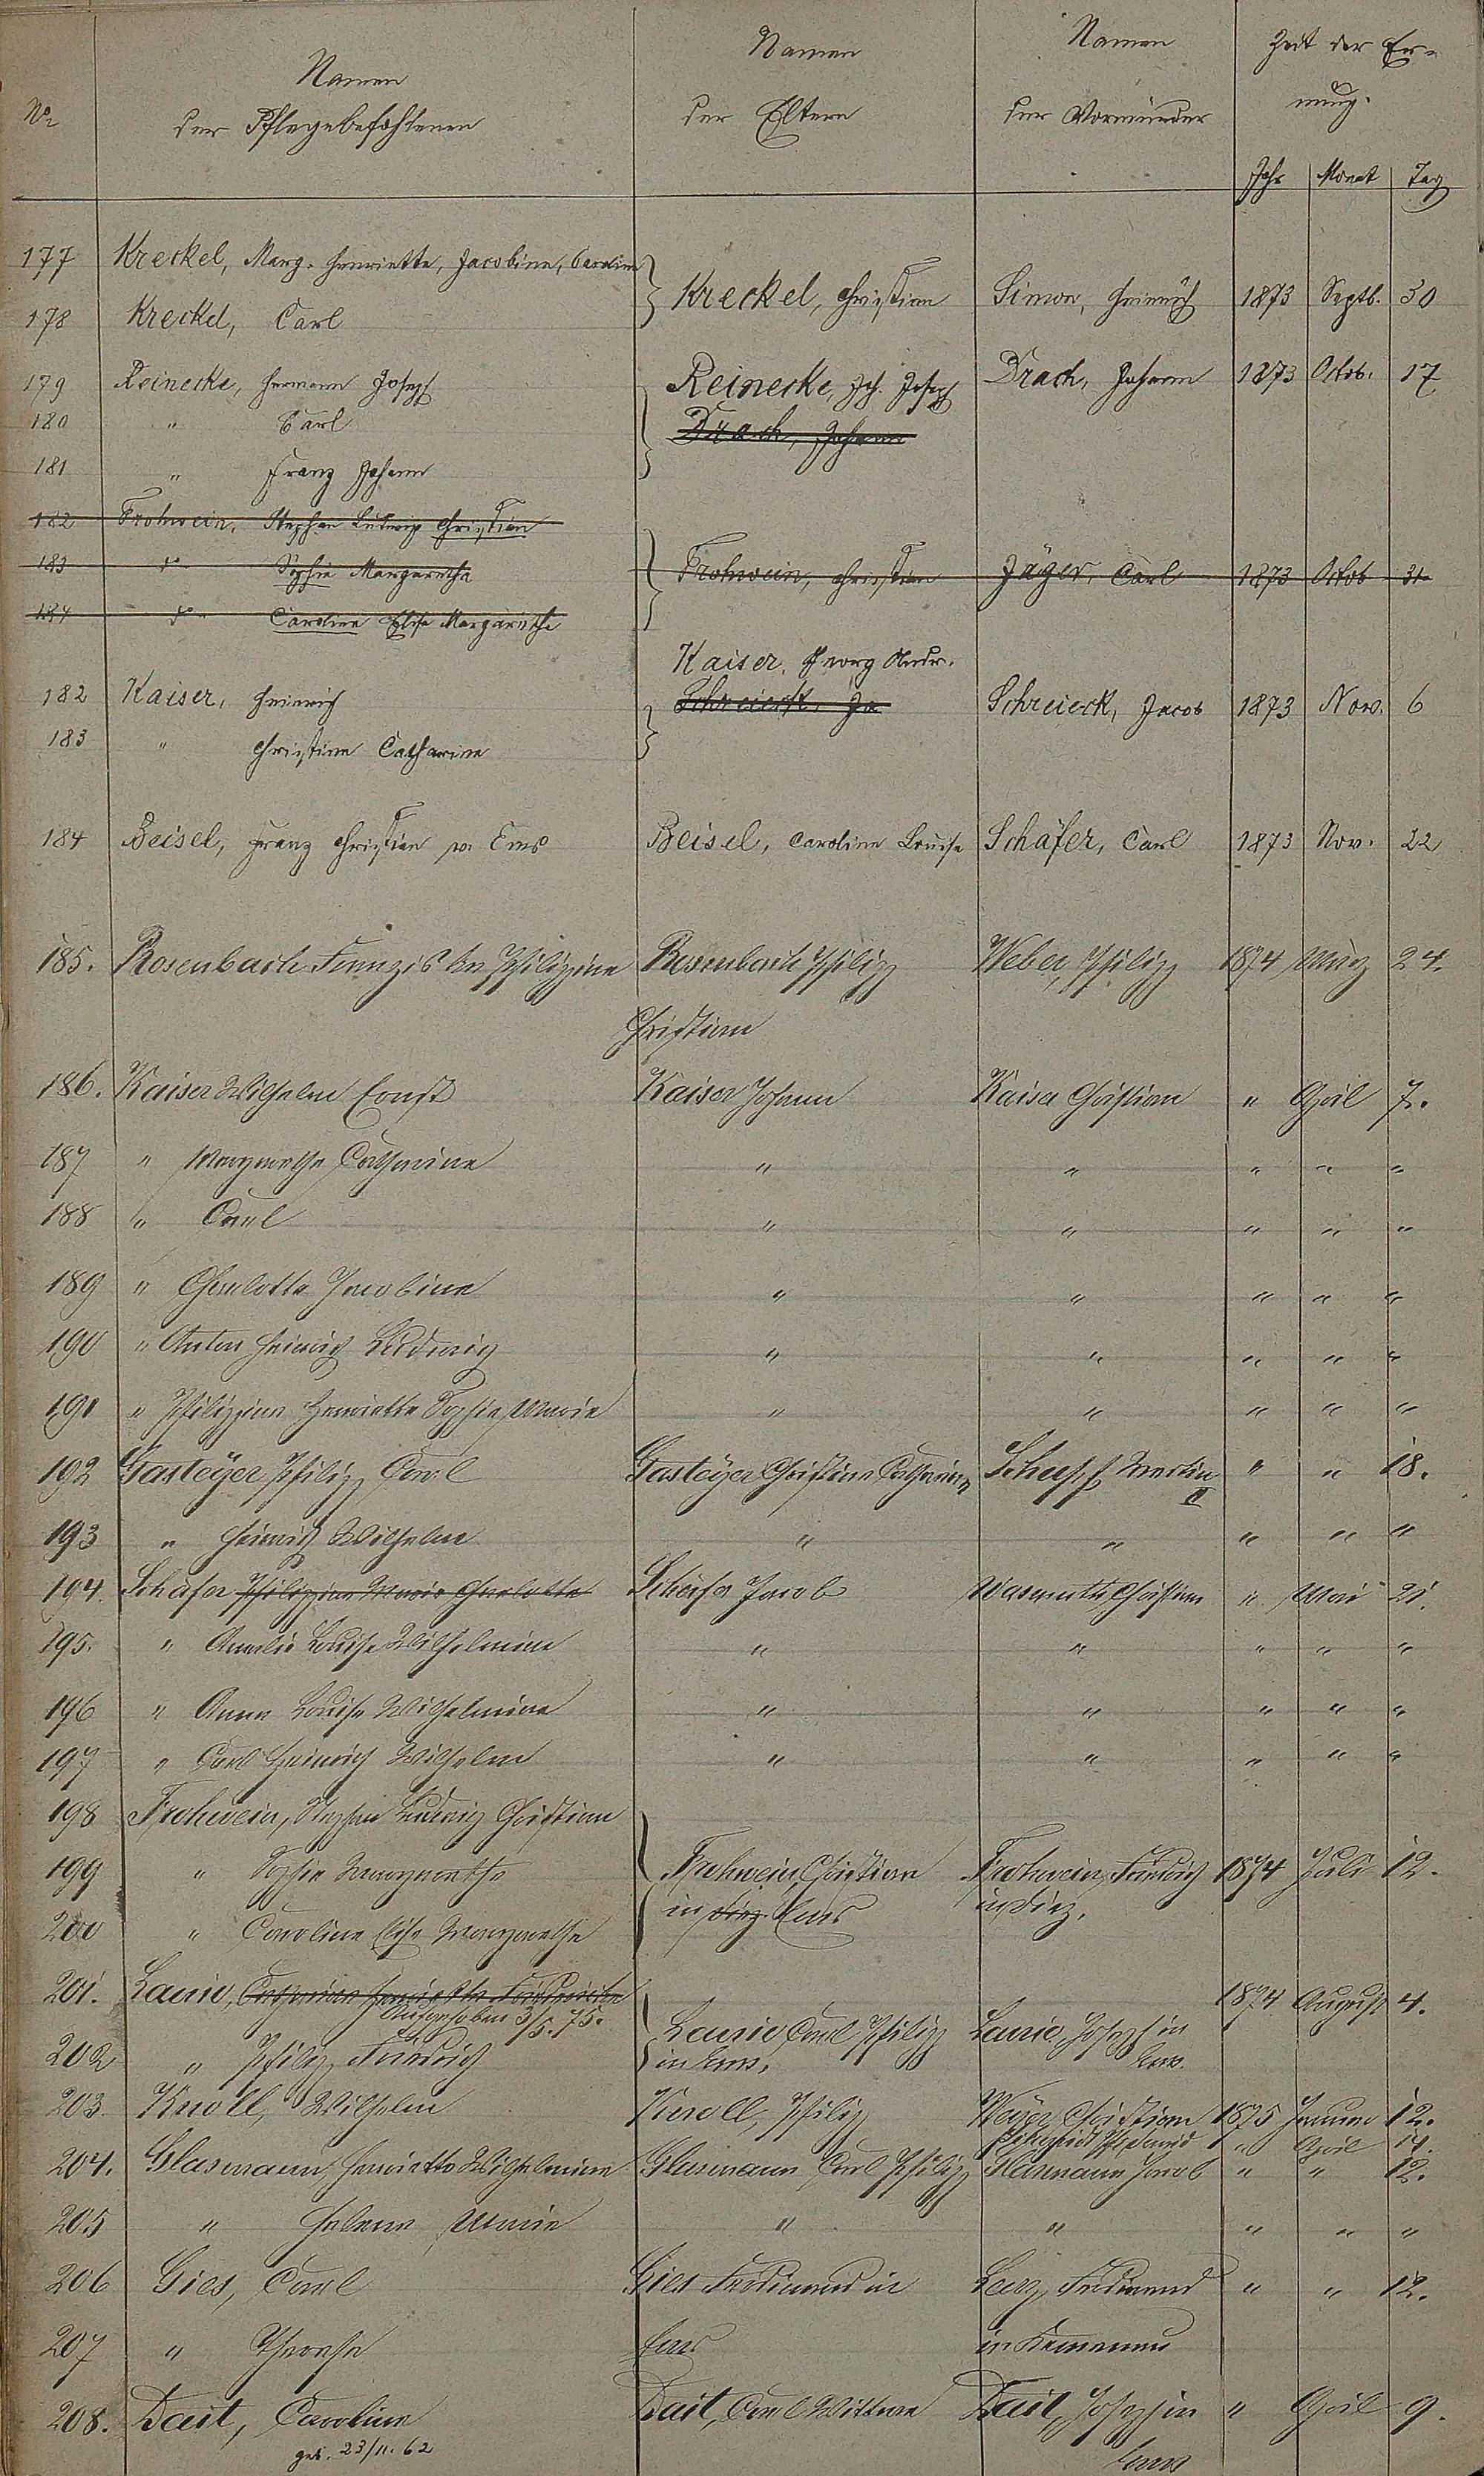 No
Namen
der Pflegebefohlenen
Namen
der Eltern
Namen
der Vormünder
Zeit der Er-
nung.
Jahr Monat Tag
177 Kreckel, Marg. Henriette, Jacobine, Caroline
178 Kreckel, Carl
Kreckel, Christian Simon, Heinrich 1873 Septb. 30
179 Reinecke, Hermann Joseph Reinecke, Joh. Joseph Drach, Johann 1873 Octob. 17
180 " Carl Drach, Johann
181 " Franz Johann
182 Frohwein, Stephan Ludwig Christian
183 do Sophie Margaretha Frohwein, Christian Jäger, Carl 1873 Octob 31
184 do Caroline Elise Margarethe
Kaiser, Georg Andr.
182 Kaiser, Heinrich Schreieck, Ja Schreieck, Jacob 1873 Nov. 6
183 " Christine Catharine
184 Beisel, Franz Christian v. Ems Beisel, Caroline Louise Schäfer, Carl 1873 Nov. 22
185. Rosenbach Franziska Philippine Rosenbach Philipp Weber, Philipp 1874 März 24.
Christian
186. Kaiser Wilhelm Ernst Kaiser Johann Kaiser Christian " April 7.
187 " Margarethe Catharine " " " " "
188 " Carl " " " " "
189 " Charlotte Jacobine " " " " "
190 " Anton Heinrich Ludwig " " " " "
191 " Philippine Henriette Sophie Marie " " " " "
192 Gasteyer Philipp Carl Gasteyer Christine Catharine Scheuss Martin " " 18.
II
193 " Heinrich Wilhelm " " " " "
194. Schäfer Philippine Marie Charlotte Schäfer Jacob Wasmuth Christian " Mai 21.
195. " Amalie Louise Wilhelmine " " " " "
196 " Anna Louise Wilhelmine " " " " "
197 " Carl Heinrich Wilhelm " " " " "
198 Frohwein, Stephan Ludwig Christian
199 " Sophie Margarethe Frohwein, Christian Frohwein, Friedrich 1874 Juli 12.
in Diez. Ems in Diez.
200 " Caroline Elise Margarethe
201. Laurie, Catharine Henriette Friedericke 1874 August 4.
Aufgehoben 3/5. 75.
Laurie Carl Philipp Laurie, Joseph in
202 " Philipp Friedrich in Ems, Ems.
203. Knoll, Wilhelm Knoll, Philipp Meyer, Christian 1875 Januar 12.
Schmidt " April 14.
204. Glasmann, Henriette Wilhelmine Glasmann Carl Philipp Glasmann Jacob " " 12.
205 " Helene Marie " " " " "
206 Gies, Carl Gies Ferdinand in Ferdinand " " 12.
207 " Therese Ems in Kemmenau
208. Dait, Caroline Dait, Carl Wittwe Dait, Joseph in " April 9.
geb. 23/11. 62 Ems